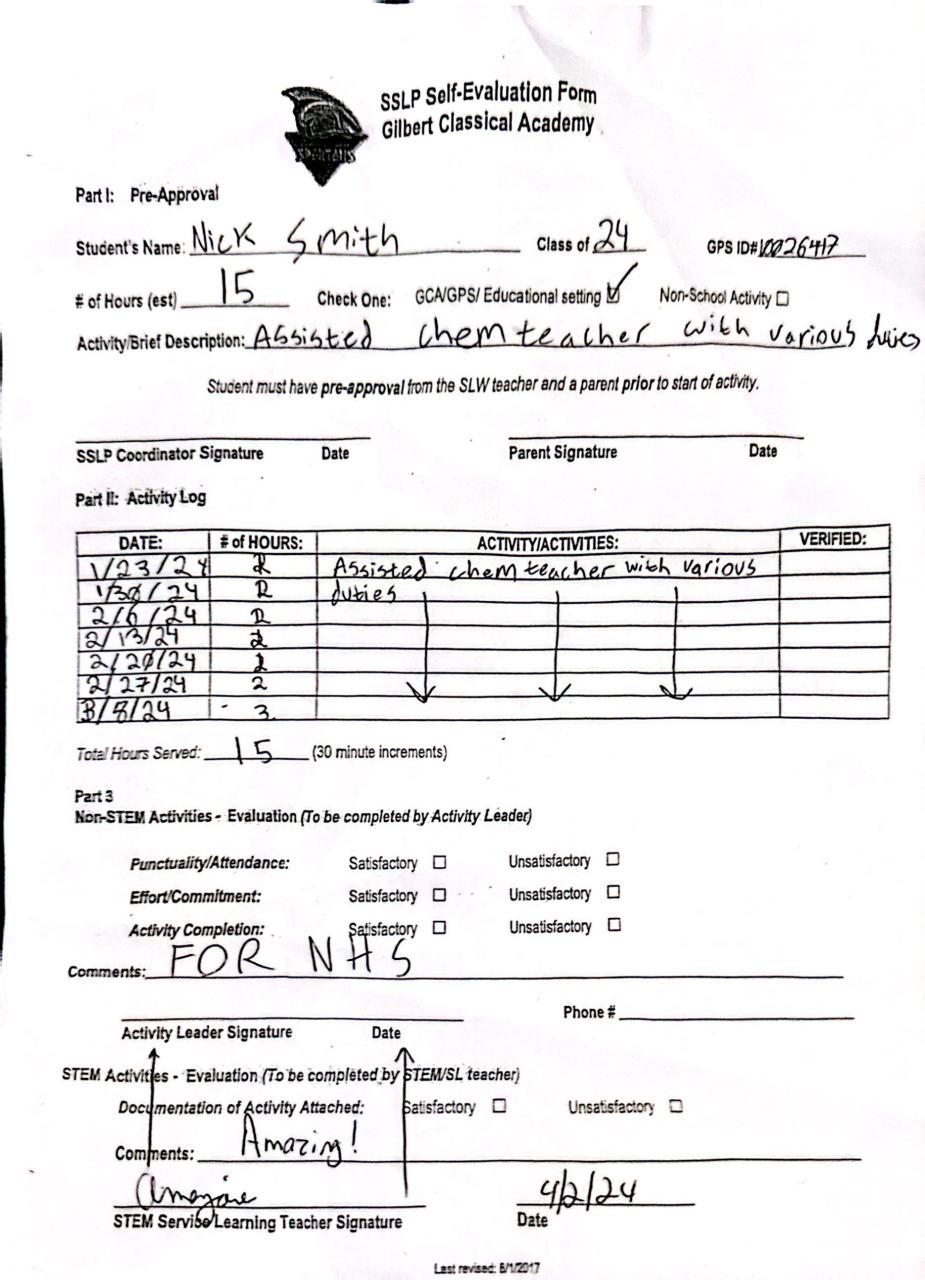 SSLP Self-Evaluation Form
Gilbert Classical Academy
SPARTANS
Part I: Pre-Approval
Student's Name: Nick Smith Class of 24 GPS ID# 10026417
# of Hours (est) 15 Check One: GCA/GPS/ Educational setting ☑ Non-School Activity ☐
Activity/Brief Description: Assisted chem teacher with various duties
Student must have pre-approval from the SLW teacher and a parent prior to start of activity.
SSLP Coordinator Signature Date Parent Signature Date
Part II: Activity Log
DATE: # of HOURS: ACTIVITY/ACTIVITIES: VERIFIED:
1/23/24 2 Assisted chem teacher with various
1/30/24 2 duties
2/6/24 2
2/13/24 2
2/20/24 2
2/27/24 2
3/8/24 3
Total Hours Served: 15 (30 minute increments)
Part 3
Non-STEM Activities - Evaluation (To be completed by Activity Leader)
Punctuality/Attendance: Satisfactory ☐ Unsatisfactory ☐
Effort/Commitment: Satisfactory ☐ Unsatisfactory ☐
Activity Completion: Satisfactory ☐ Unsatisfactory ☐
Comments: FOR NHS
Phone #
Activity Leader Signature Date
STEM Activities - Evaluation (To be completed by STEM/SL teacher)
Documentation of Activity Attached: Satisfactory ☐ Unsatisfactory ☐
Comments: Amazing!
4/2/24
STEM Service Learning Teacher Signature Date
Last revised: 8/1/2017